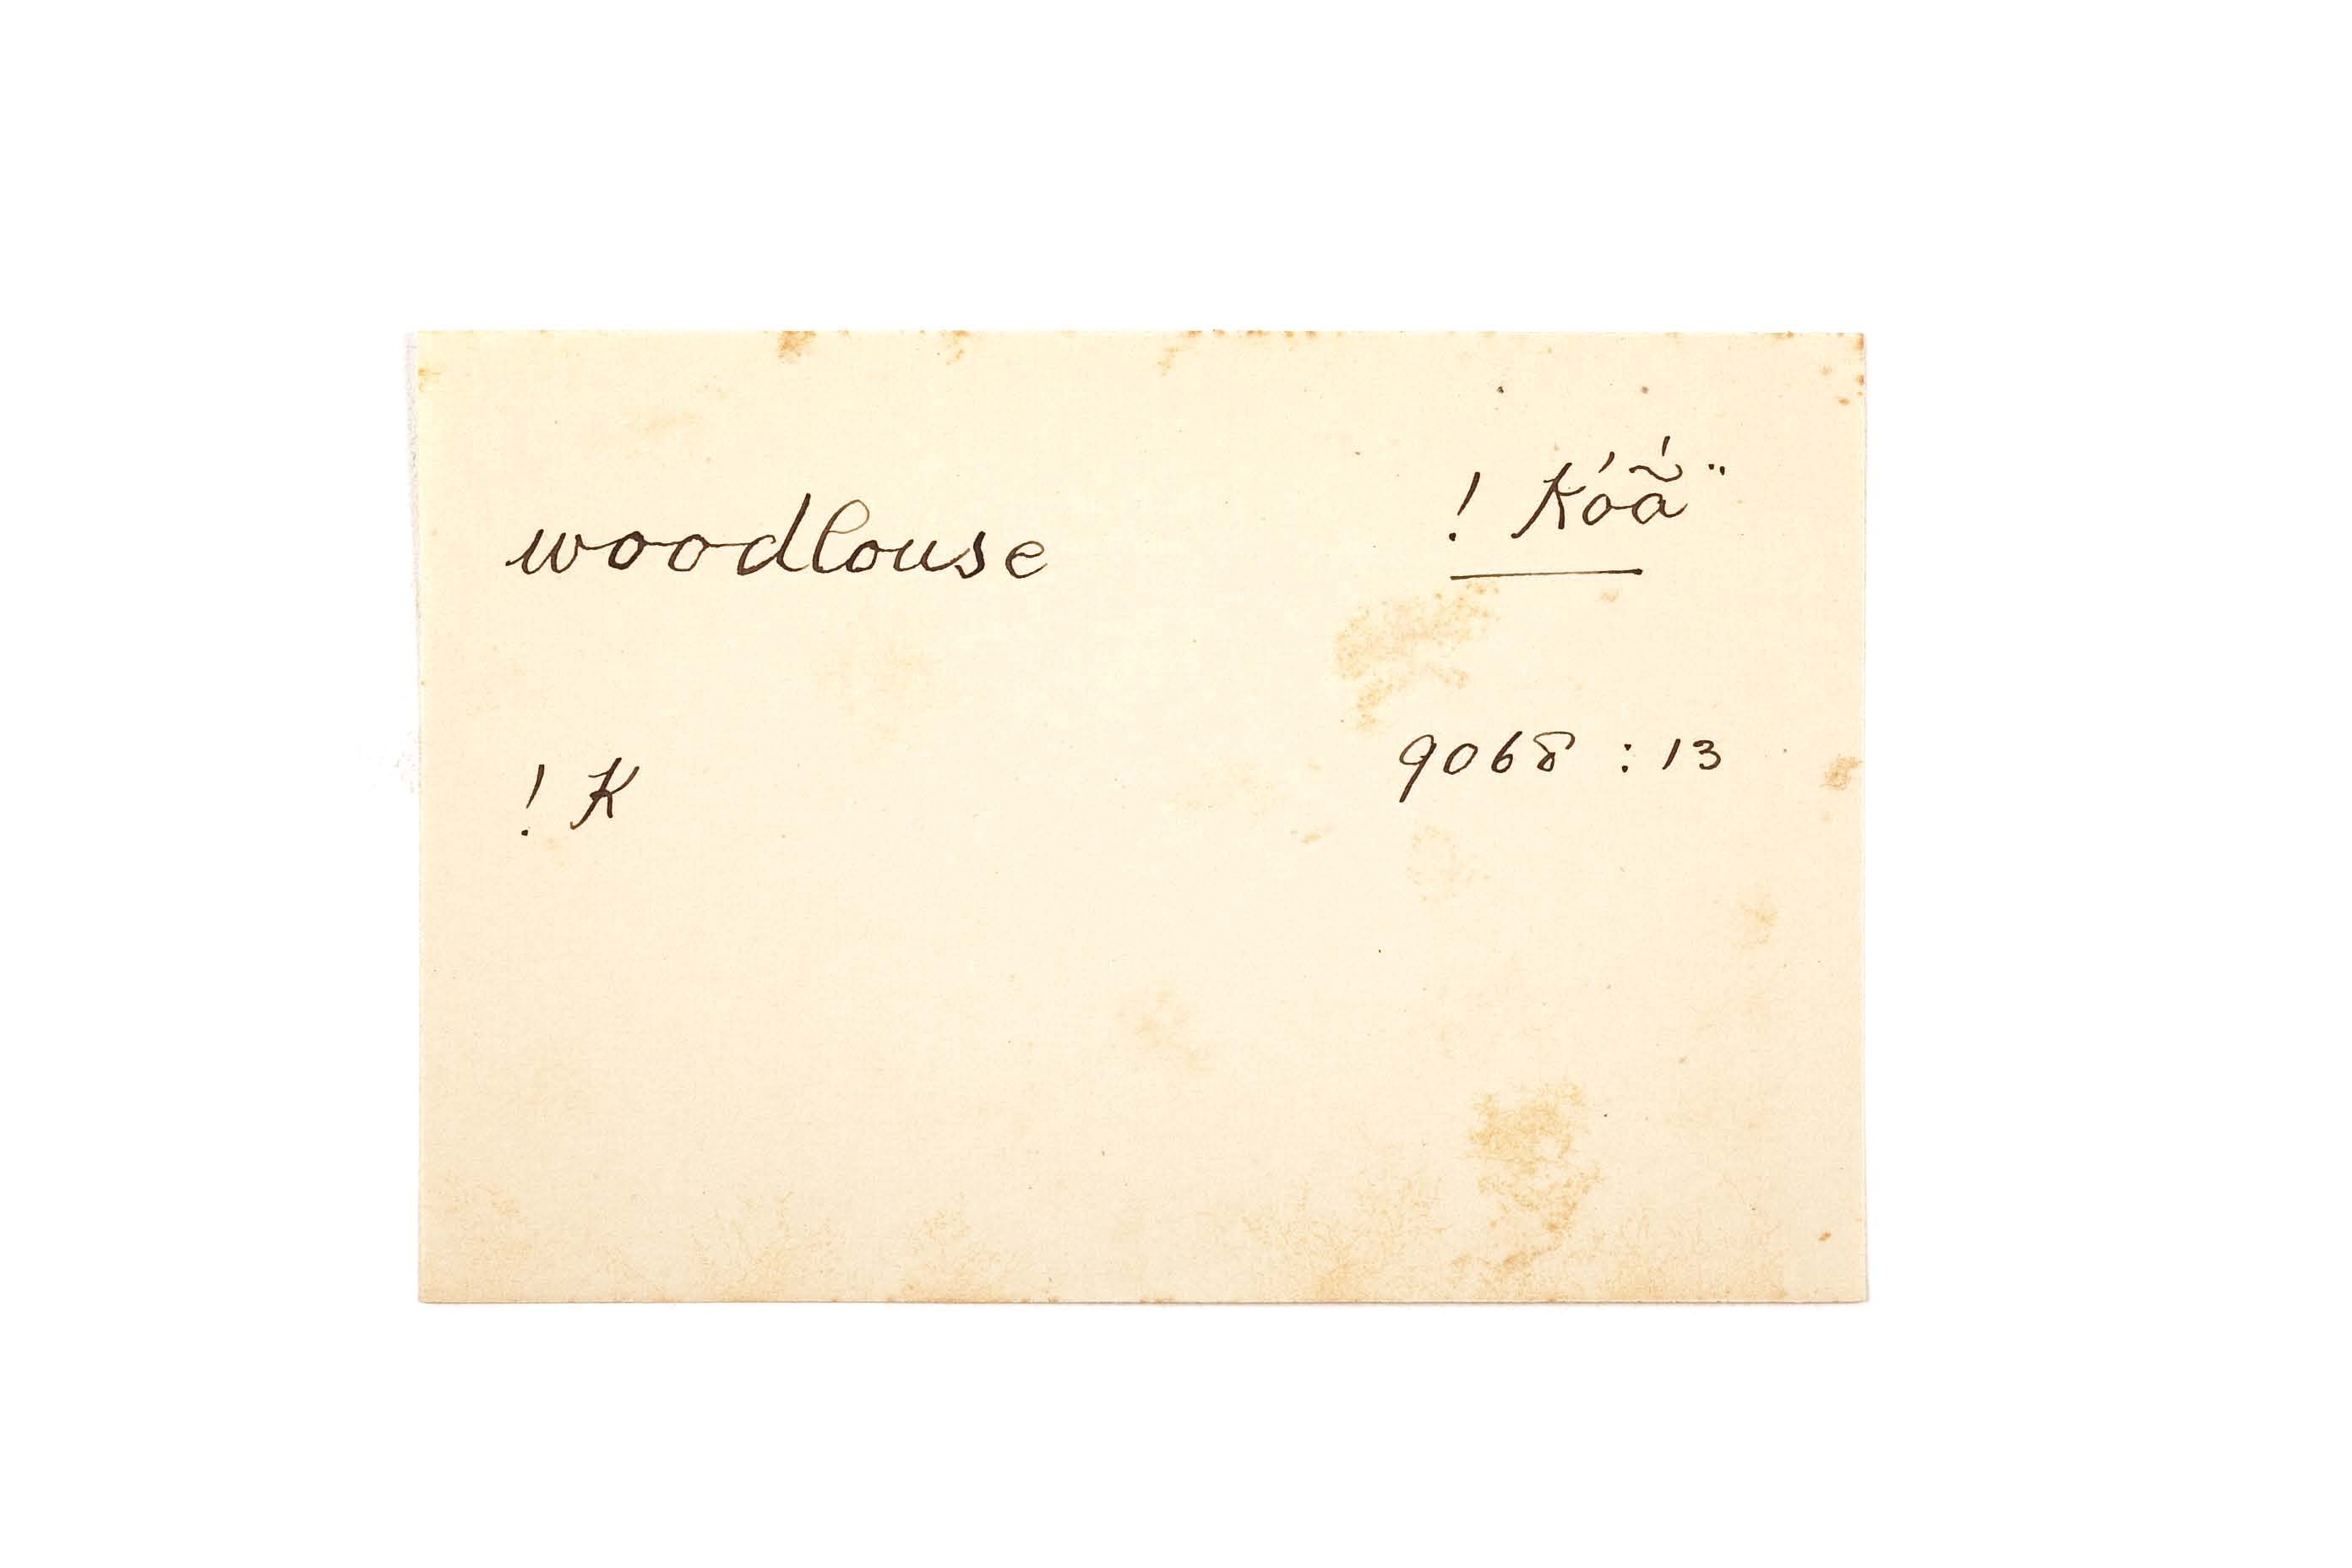 woodlouse ! Kóã́¨
! K 9068 : 13